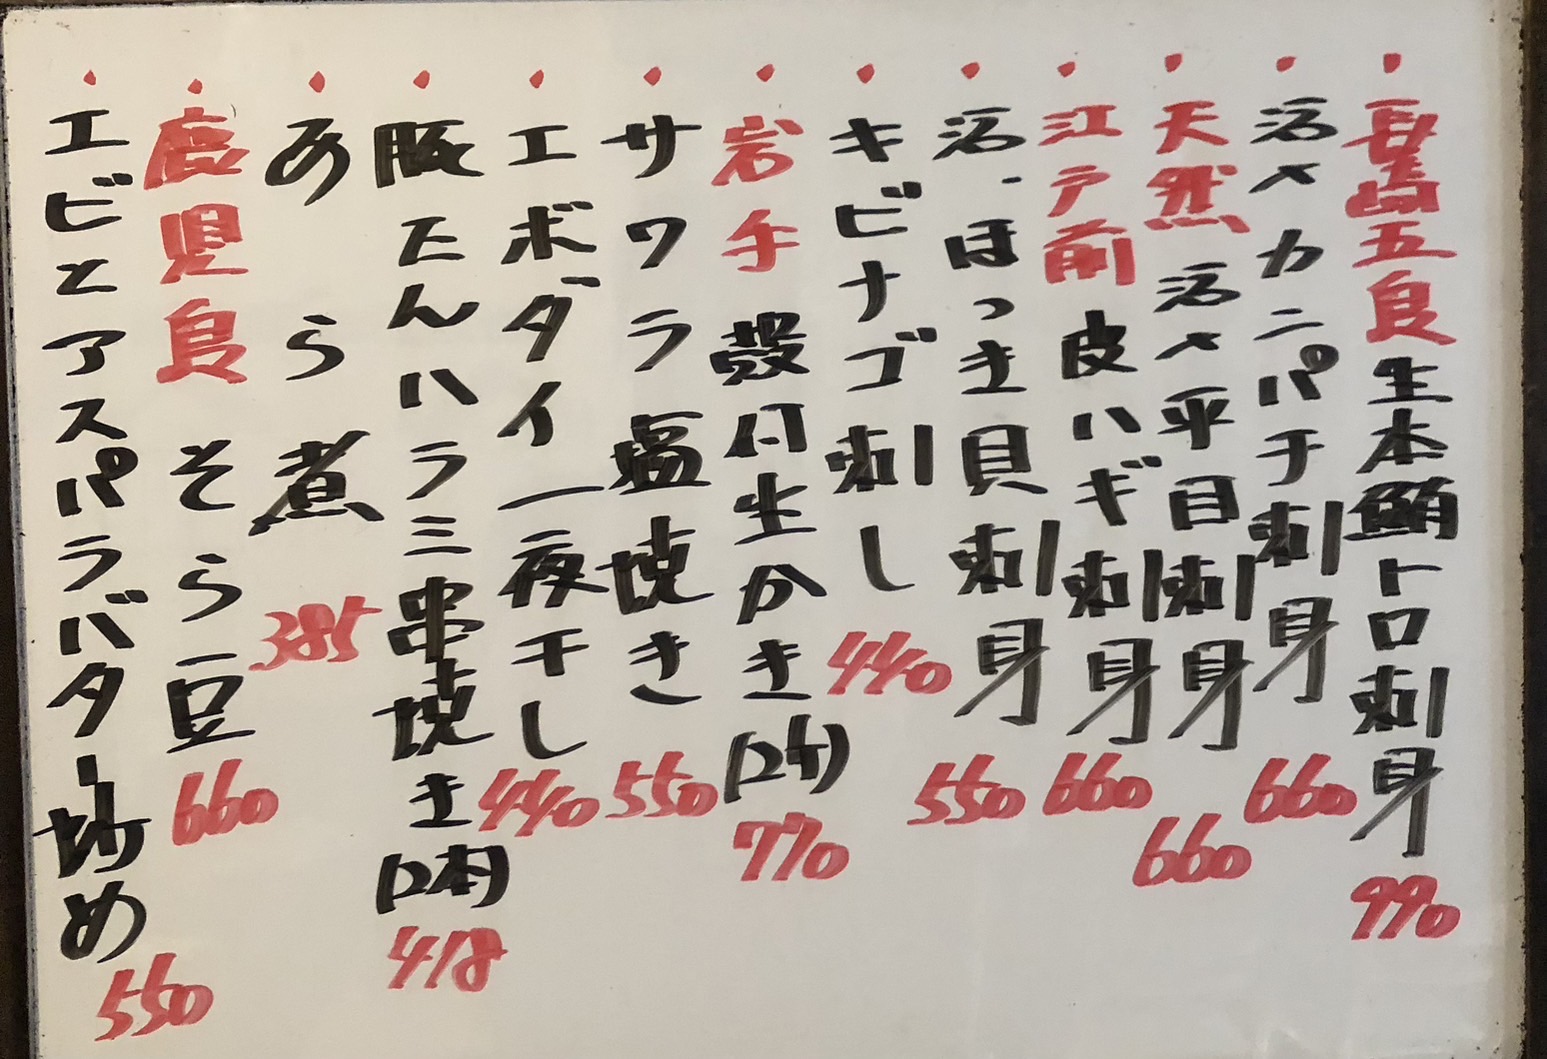 長崎五島生本鮪トロ刺身 990
活〆カンパチ刺身 660
天然活〆平目刺身 660
江戸前皮ハギ刺身 660
活ほっき貝刺身 550
キビナゴ刺し 440
岩手殻付生かき(2ケ) 770
サワラ塩焼き 550
エボダイ一夜干し 440
豚たんハラミ串焼き(2本) 418
あら煮 385
鹿児島そら豆 660
エビとアスパラバター炒め 550